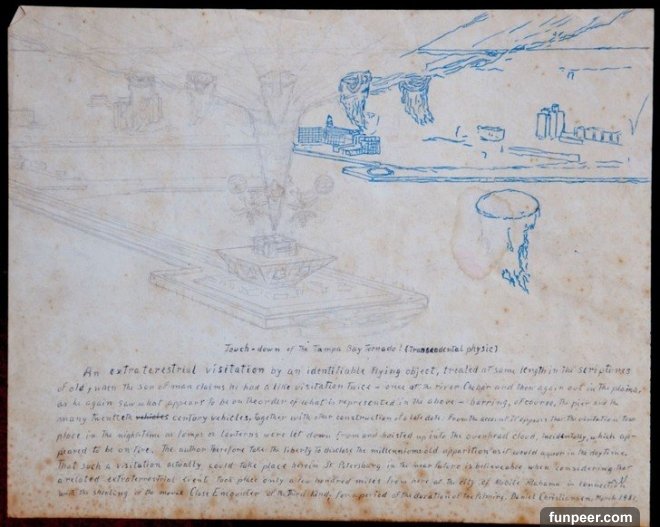 Touch-down of the Tampa Bay Tornado! (Transcedental physic)
An extraterestrial visitation by an identifiable flying object, treated at some length in the scriptures
of old, when the son of man claims he had a like visitation twice - once at the river Chebar and then again out in the plains,
as he again saw what appears to be on the order of what is represented in the above - barring, of course, the pier and the
many twentieth vehicles century vehicles, together with other construction of a late date. From the account it appears that the visitation took
place in the nighttime as lamps or lanterns were let down from and hoisted up into the overhead cloud, incidentally, which ap-
peared to be on fire. The author therefore take the liberty to disclose the millenniums old apparition as it would appear in the daytime.
That such a visitation actually could take place here in St. Petersburg in the near future is believeable when considering that
a related extraterrestrial event took place only a few hundred miles from here at the city of Mobile Alabama in connection
with the shooting of the movie Close Encounter of the Third Kind, for a period of the duration of the filming. Daniel Christiansen, March 1981.
funpeer.com